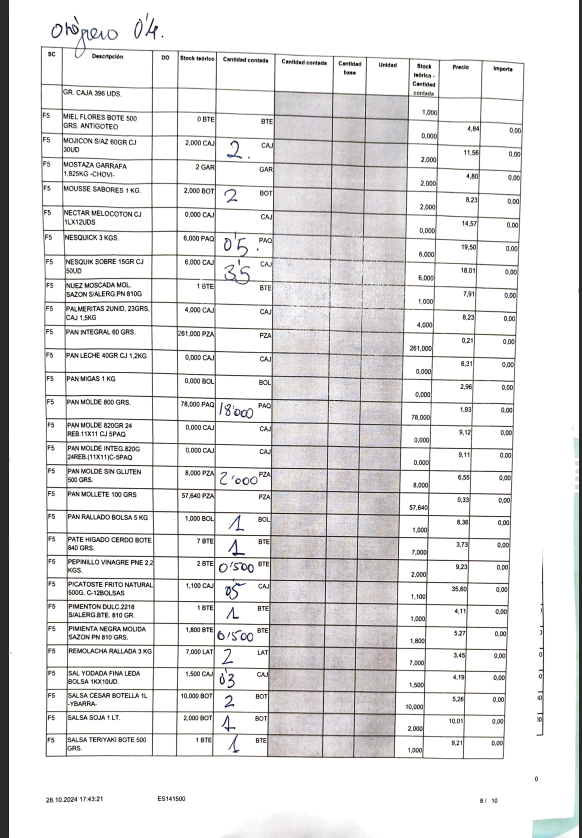 orégano 0'4.
SC Descripción DO Stock teórico Cantidad contada Cantidad contada Cantidad base Unidad Stock teórico - Cantidad contada Precio Importe
GR. CAJA 396 UDS. 1,000
F5 MIEL FLORES BOTE 500 GRS. ANTIGOTEO 0 BTE BTE 0,000 4,84 0,00
F5 MOJICON S/AZ 60GR CJ 30UD 2,000 CAJ 2. CAJ 2,000 11,56 0,00
F5 MOSTAZA GARRAFA 1,825KG -CHOVI- 2 GAR GAR 2,000 4,80 0,00
F5 MOUSSE SABORES 1 KG. 2,000 BOT 2 BOT 2,000 8,23 0,00
F5 NECTAR MELOCOTON CJ 1LX12UDS 0,000 CAJ CAJ 0,000 14,57 0,00
F5 NESQUICK 3 KGS. 6,000 PAQ 0'5. PAQ 6,000 19,50 0,00
F5 NESQUIK SOBRE 15GR CJ 50UD 6,000 CAJ 3'5 CAJ 6,000 18,01 0,00
F5 NUEZ MOSCADA MOL. SAZON S/ALERG.PN 810G 1 BTE BTE 1,000 7,91 0,00
F5 PALMERITAS 2UNID, 23GRS, CAJ 1,5KG 4,000 CAJ CAJ 4,000 8,23 0,00
F5 PAN INTEGRAL 60 GRS. 261,000 PZA PZA 261,000 0,21 0,00
F5 PAN LECHE 40GR CJ 1,2KG 0,000 CAJ CAJ 0,000 6,31 0,00
F5 PAN MIGAS 1 KG 0,000 BOL BOL 0,000 2,96 0,00
F5 PAN MOLDE 800 GRS. 78,000 PAQ 18'000 PAQ 78,000 1,93 0,00
F5 PAN MOLDE 820GR 24 REB.11X11 CJ 5PAQ 0,000 CAJ CAJ 0,000 9,12 0,00
F5 PAN MOLDE INTEG.820G 24REB.(11X11)C-5PAQ 0,000 CAJ CAJ 0,000 9,11 0,00
F5 PAN MOLDE SIN GLUTEN 500 GRS. 8,000 PZA 2'000 PZA 8,000 6,55 0,00
F5 PAN MOLLETE 100 GRS 57,640 PZA PZA 57,640 0,33 0,00
F5 PAN RALLADO BOLSA 5 KG 1,000 BOL 1 BOL 1,000 8,36 0,00
F5 PATE HIGADO CERDO BOTE 840 GRS. 7 BTE 1 BTE 7,000 3,73 0,00
F5 PEPINILLO VINAGRE PNE 2.2 KGS. 2 BTE 0'500 BTE 2,000 9,23 0,00
F5 PICATOSTE FRITO NATURAL 500G. C-12BOLSAS 1,100 CAJ 0'5 CAJ 1,100 35,60 0,00
F5 PIMENTON DULC.2218 S/ALERG.BTE. 810 GR. 1 BTE 1 BTE 1,000 4,11 0,00
F5 PIMIENTA NEGRA MOLIDA SAZON PN 810 GRS. 1,800 BTE 0'500 BTE 1,800 5,27 0,00
F5 REMOLACHA RALLADA 3 KG 7,000 LAT 2 LAT 7,000 3,45 0,00
F5 SAL YODADA FINA LEDA BOLSA 1KX10UD. 1,500 CAJ 0'3 CAJ 1,500 4,19 0,00
F5 SALSA CESAR BOTELLA 1L -YBARRA- 10,000 BOT 2 BOT 10,000 5,26 0,00
F5 SALSA SOJA 1 LT. 2,000 BOT 1 BOT 2,000 10,01 0,00
F5 SALSA TERIYAKI BOTE 500 GRS. 1 BTE 1 BTE 1,000 9,21 0,00
28.10.2024 17:43:21 ES141500 8 / 10